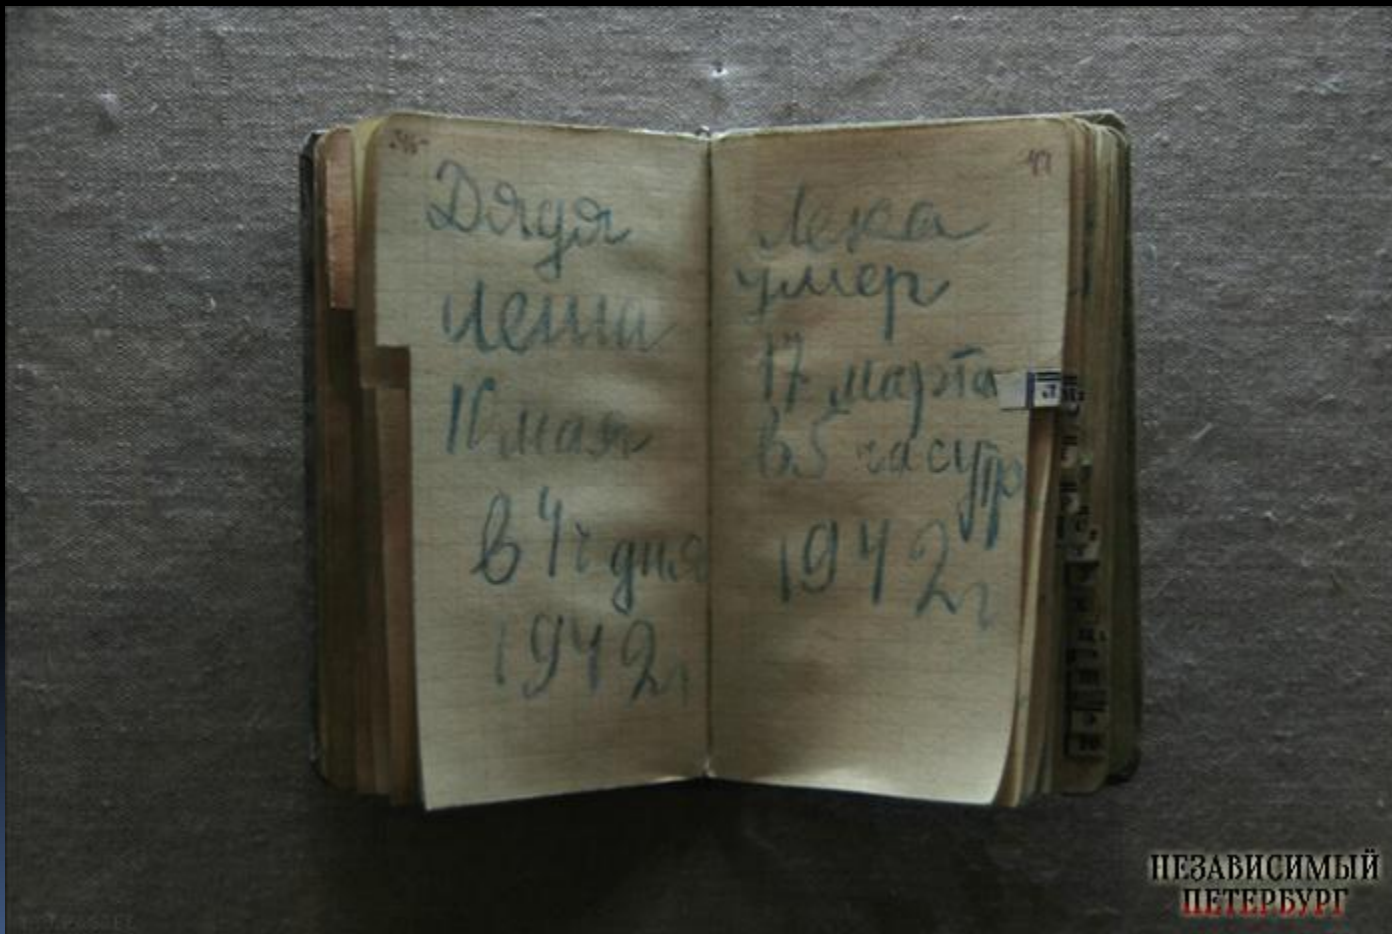 Дядя
Леша
10 мая
в 4ч дня
1942г
47
Лека
умер
17 марта
в 5 часутр
1942г
Л
НЕЗАВИСИМЫЙ
ПЕТЕРБУРГ